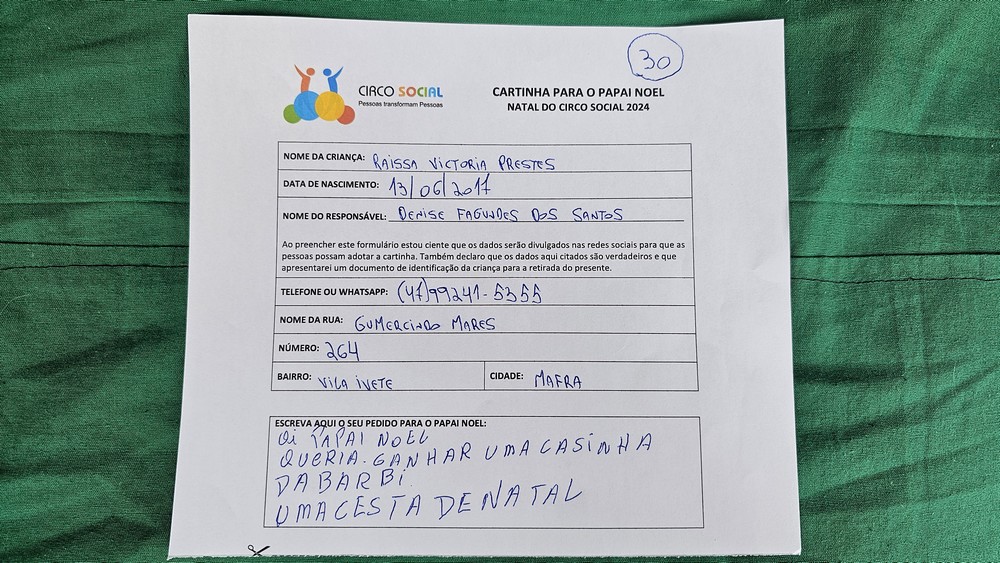 30
CIRCO SOCIAL
Pessoas transformam Pessoas
CARTINHA PARA O PAPAI NOEL
NATAL DO CIRCO SOCIAL 2024
NOME DA CRIANÇA: RAISSA VICTORIA PRESTES
DATA DE NASCIMENTO: 13/06/2017
NOME DO RESPONSÁVEL: DENISE FAGUNDES DOS SANTOS
Ao preencher este formulário estou ciente que os dados serão divulgados nas redes sociais para que as
pessoas possam adotar a cartinha. Também declaro que os dados aqui citados são verdadeiros e que
apresentarei um documento de identificação da criança para a retirada do presente.
TELEFONE OU WHATSAPP: (47)99241-5355
NOME DA RUA: GUMERCINDO MARES
NÚMERO: 264
BAIRRO: VILA IVETE CIDADE: MAFRA
ESCREVA AQUI O SEU PEDIDO PARA O PAPAI NOEL:
Oi PAPAI NOEL
QUERIA. GANHAR UMA CASINHA
DA BARBI
UMA CESTA DE NATAL